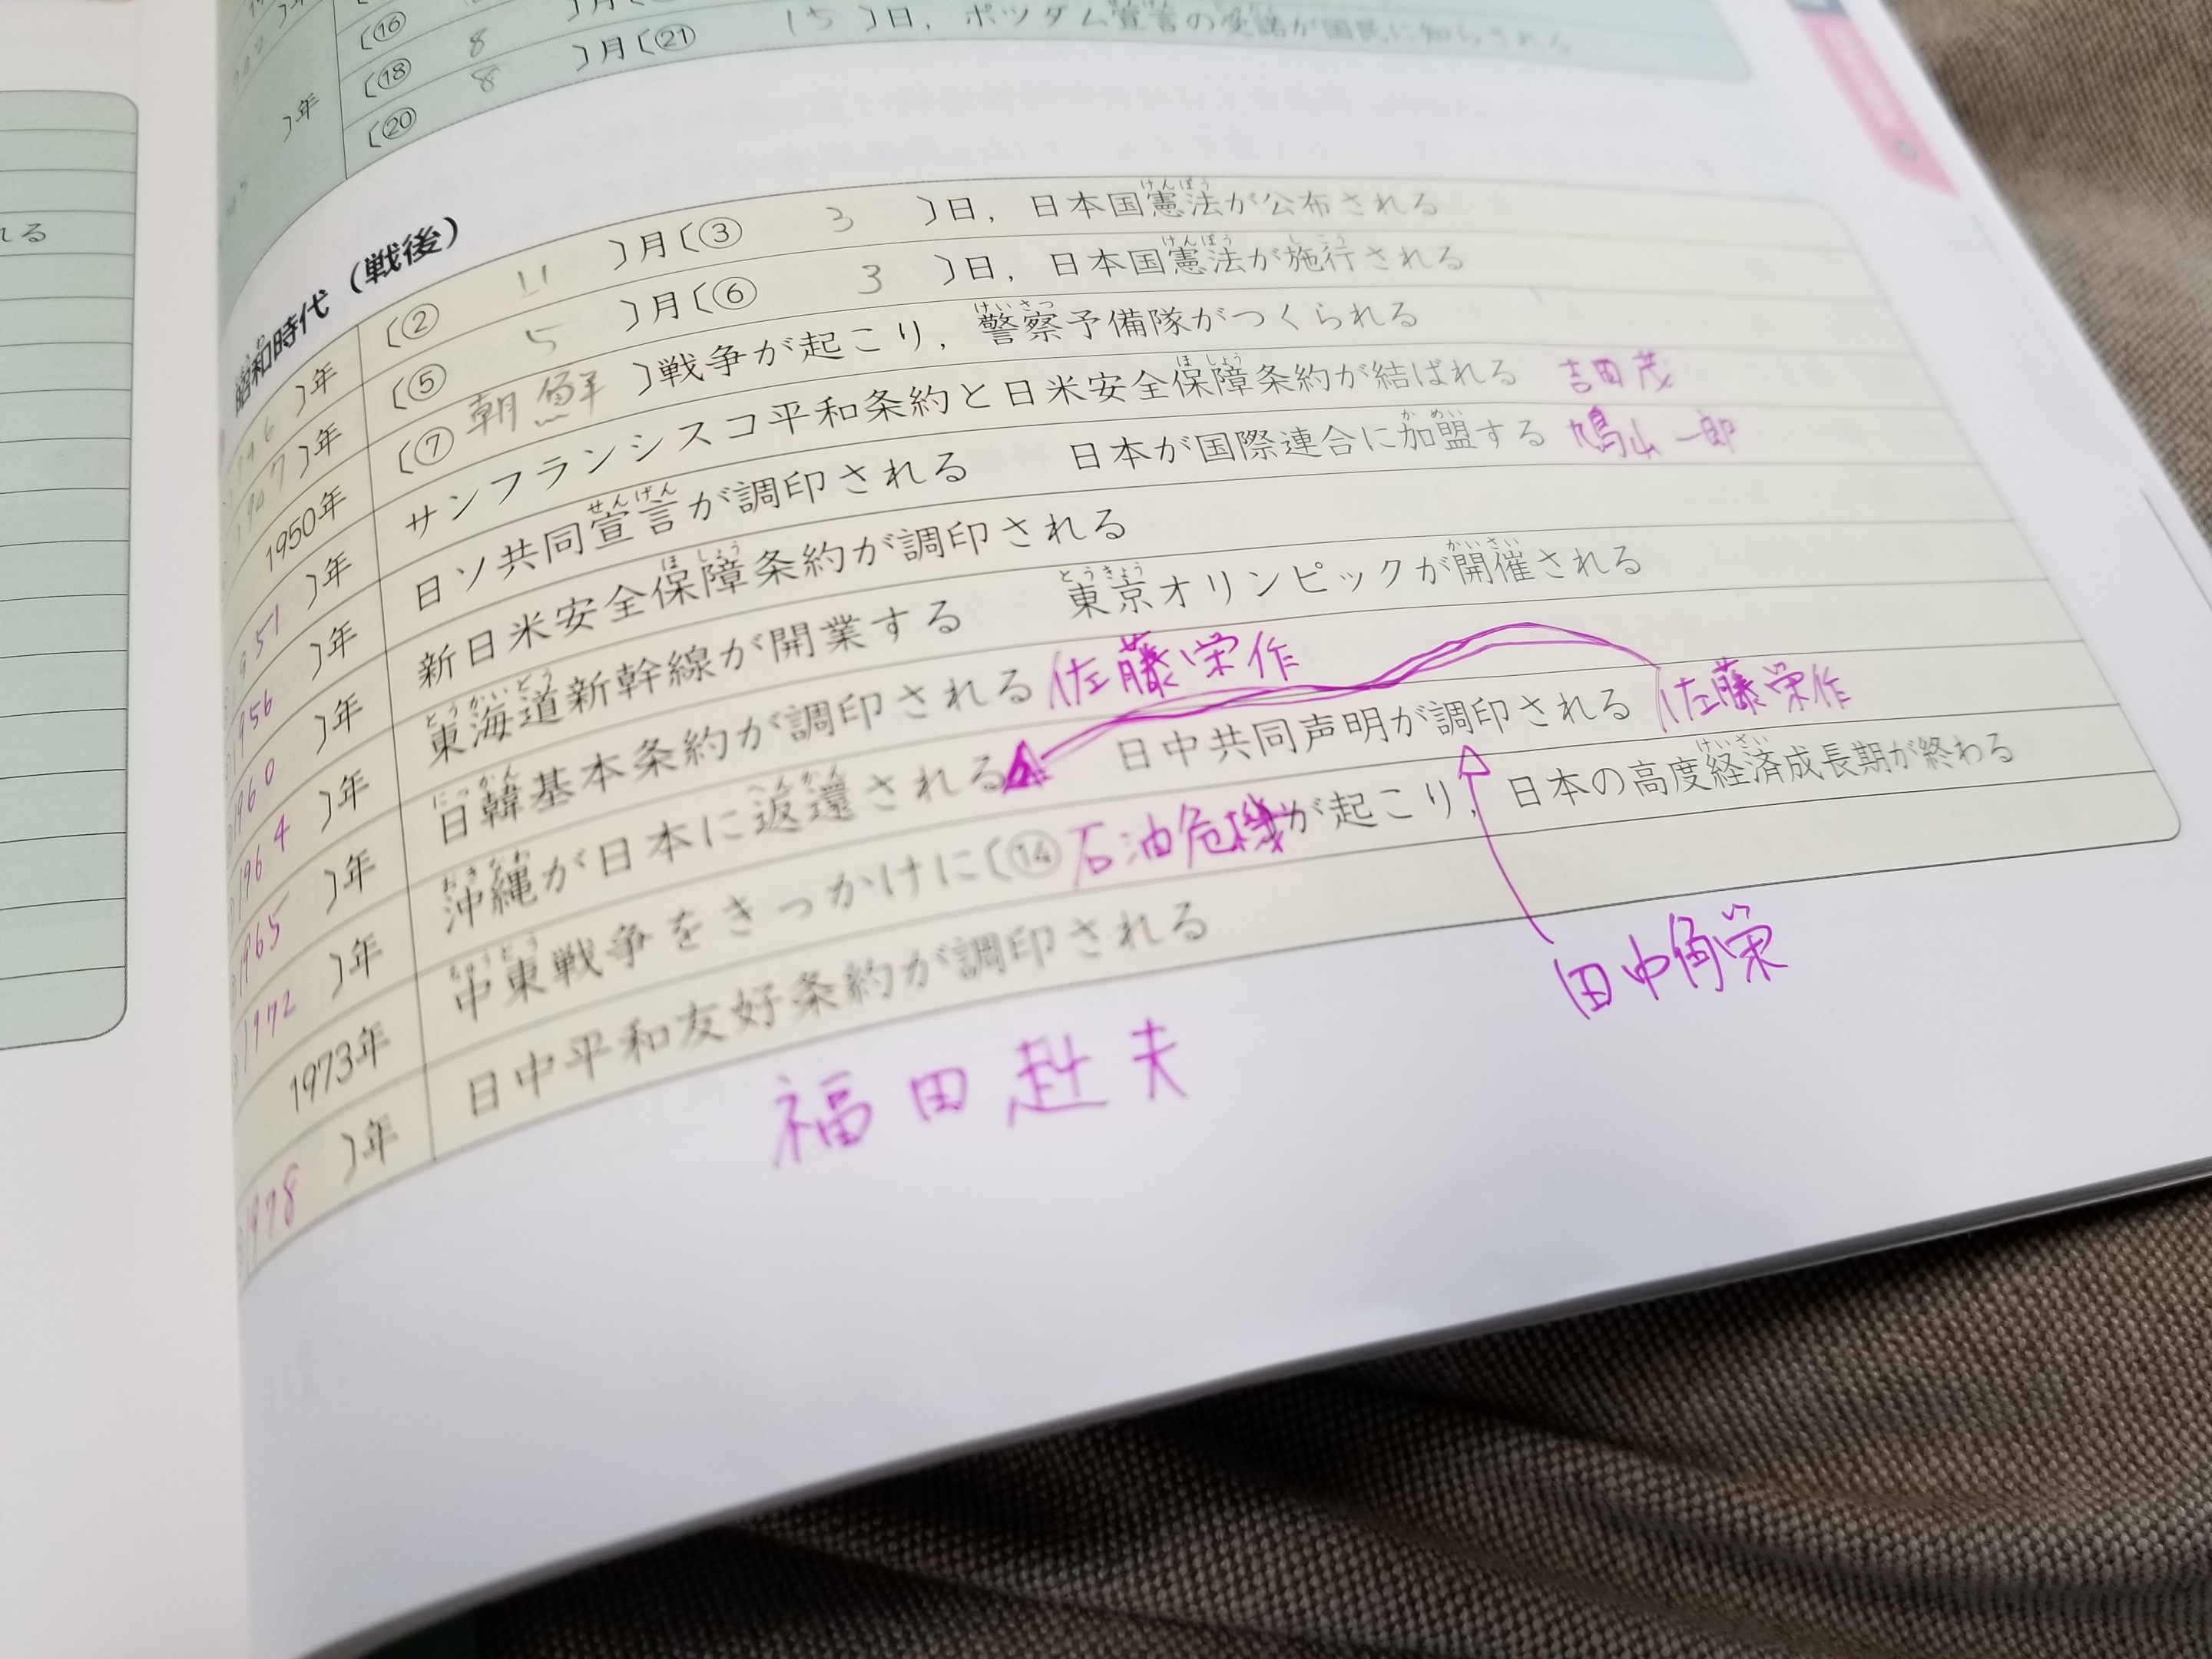 〔⑯ 8 〕月
〔⑱ 8 〕月〔㉑ 15 〕日，ポツダム宣言の受諾が国民に知らされる
〕年 〔⑳
れる
昭和時代（戦後）
1946 〕年 〔② 11 〕月〔③ 3 〕日，日本国憲法が公布される
1947 〕年 〔⑤ 5 〕月〔⑥ 3 〕日，日本国憲法が施行される
1950年 〔⑦ 朝鮮 〕戦争が起こり，警察予備隊がつくられる
1951 〕年 サンフランシスコ平和条約と日米安全保障条約が結ばれる 吉田茂
1956 〕年 日ソ共同宣言が調印される 日本が国際連合に加盟する 鳩山一郎
1960 〕年 新日米安全保障条約が調印される
1964 〕年 東海道新幹線が開業する 東京オリンピックが開催される
1965 〕年 日韓基本条約が調印される 佐藤栄作
1972 〕年 沖縄が日本に返還される 日中共同声明が調印される 佐藤栄作
1973年 中東戦争をきっかけに〔⑭ 石油危機が起こり，日本の高度経済成長期が終わる
1978 〕年 日中平和友好条約が調印される
田中角栄
福田赳夫